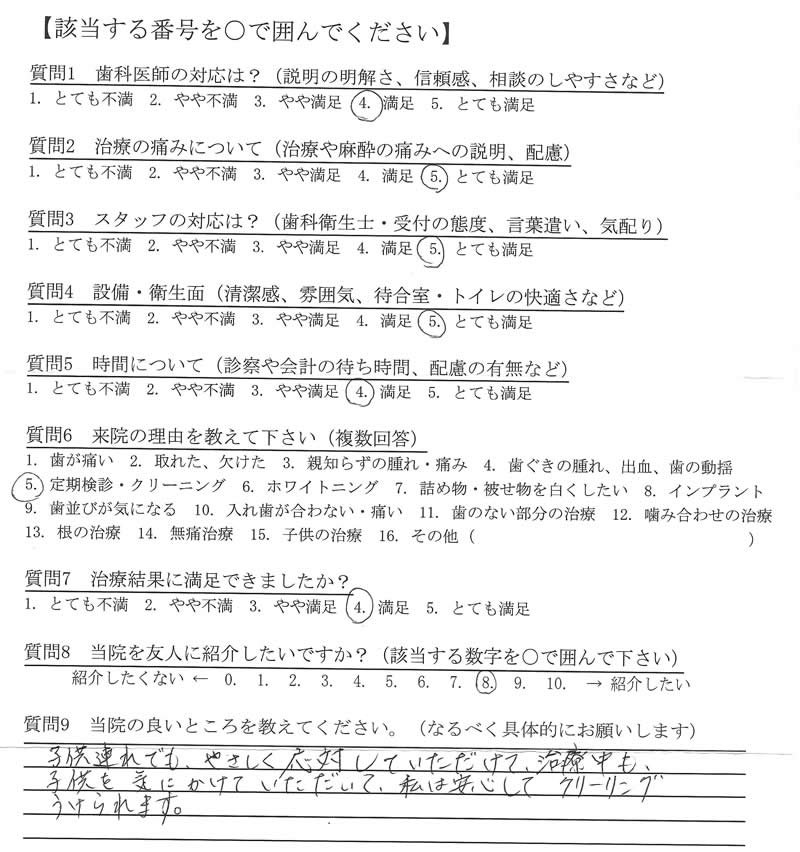 【該当する番号を○で囲んでください】
質問1　歯科医師の対応は？（説明の明解さ、信頼感、相談のしやすさなど）
1. とても不満　2. やや不満　3. やや満足　4. 満足　5. とても満足
質問2　治療の痛みについて（治療や麻酔の痛みへの説明、配慮）
1. とても不満　2. やや不満　3. やや満足　4. 満足　5. とても満足
質問3　スタッフの対応は？（歯科衛生士・受付の態度、言葉遣い、気配り）
1. とても不満　2. やや不満　3. やや満足　4. 満足　5. とても満足
質問4　設備・衛生面（清潔感、雰囲気、待合室・トイレの快適さなど）
1. とても不満　2. やや不満　3. やや満足　4. 満足　5. とても満足
質問5　時間について（診察や会計の待ち時間、配慮の有無など）
1. とても不満　2. やや不満　3. やや満足　4. 満足　5. とても満足
質問6　来院の理由を教えて下さい（複数回答）
1. 歯が痛い　2. 取れた、欠けた　3. 親知らずの腫れ・痛み　4. 歯ぐきの腫れ、出血、歯の動揺
5. 定期検診・クリーニング　6. ホワイトニング　7. 詰め物・被せ物を白くしたい　8. インプラント
9. 歯並びが気になる　10. 入れ歯が合わない・痛い　11. 歯のない部分の治療　12. 噛み合わせの治療
13. 根の治療　14. 無痛治療　15. 子供の治療　16. その他（　　　）
質問7　治療結果に満足できましたか？
1. とても不満　2. やや不満　3. やや満足　4. 満足　5. とても満足
質問8　当院を友人に紹介したいですか？（該当する数字を○で囲んで下さい）
紹介したくない ← 0. 1. 2. 3. 4. 5. 6. 7. 8. 9. 10. → 紹介したい
質問9　当院の良いところを教えてください。（なるべく具体的にお願いします）
子供連れでも、やさしく応対していただけて、治療中も、
子供を気にかけていただいて、私は安心して クリーリング
うけられます。